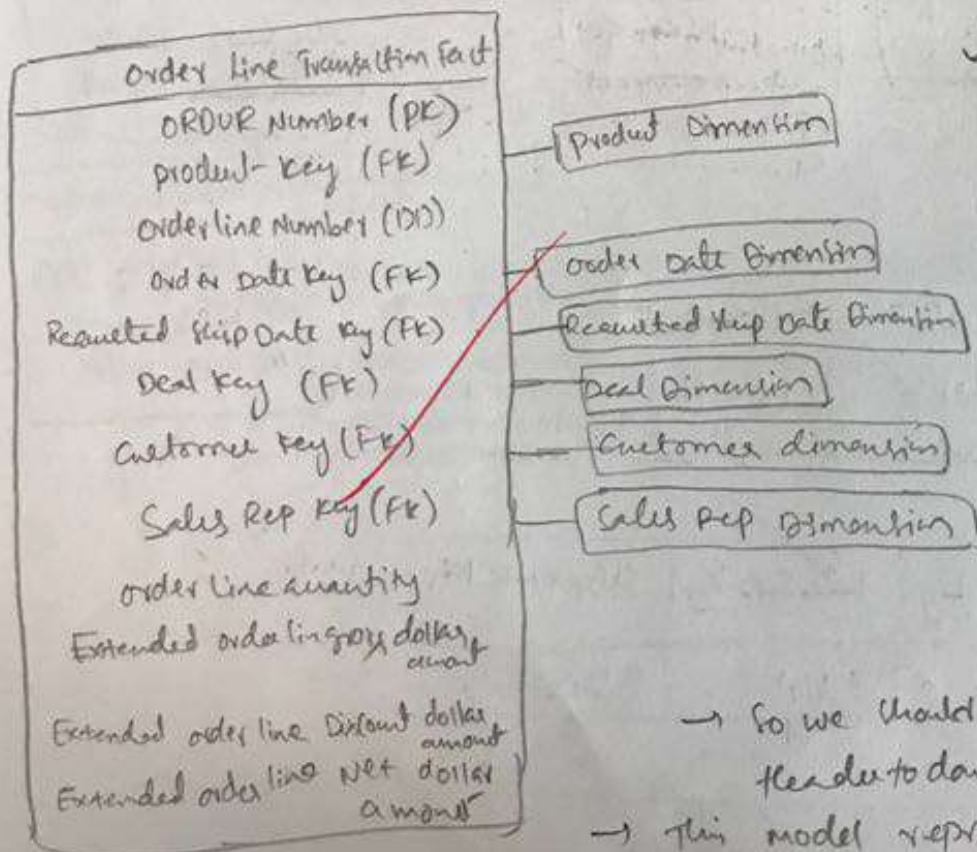 Order Line Transaction Fact
ORDUR Number (PK)
product-key (FK)
Orderline Number (DD)
order Date key (FK)
Requeted ship Date key (FK)
Deal key (FK)
Customer key (FK)
Sales Rep key (FK)
order line quantity
Extended order lin gross dollar
amount
Extended order line Discount dollar
amount
Extended order line Net dollar
amount
product Dimention
order Date Dimension
Requeted ship Date Dimension
Deal Dimension
Customer dimension
Sales Rep Dimension
→ So we should
Header to
→ This model